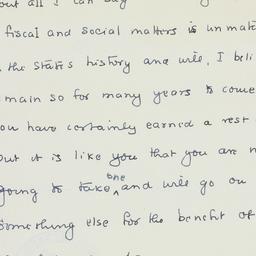 out all I can say
fiscal and social matters is unmat
the State's history and will, I beli
main so for many years to come
ou have certainly earned a rest
out it is like you that you are n
going to take one and will go on
something else for the benefit of